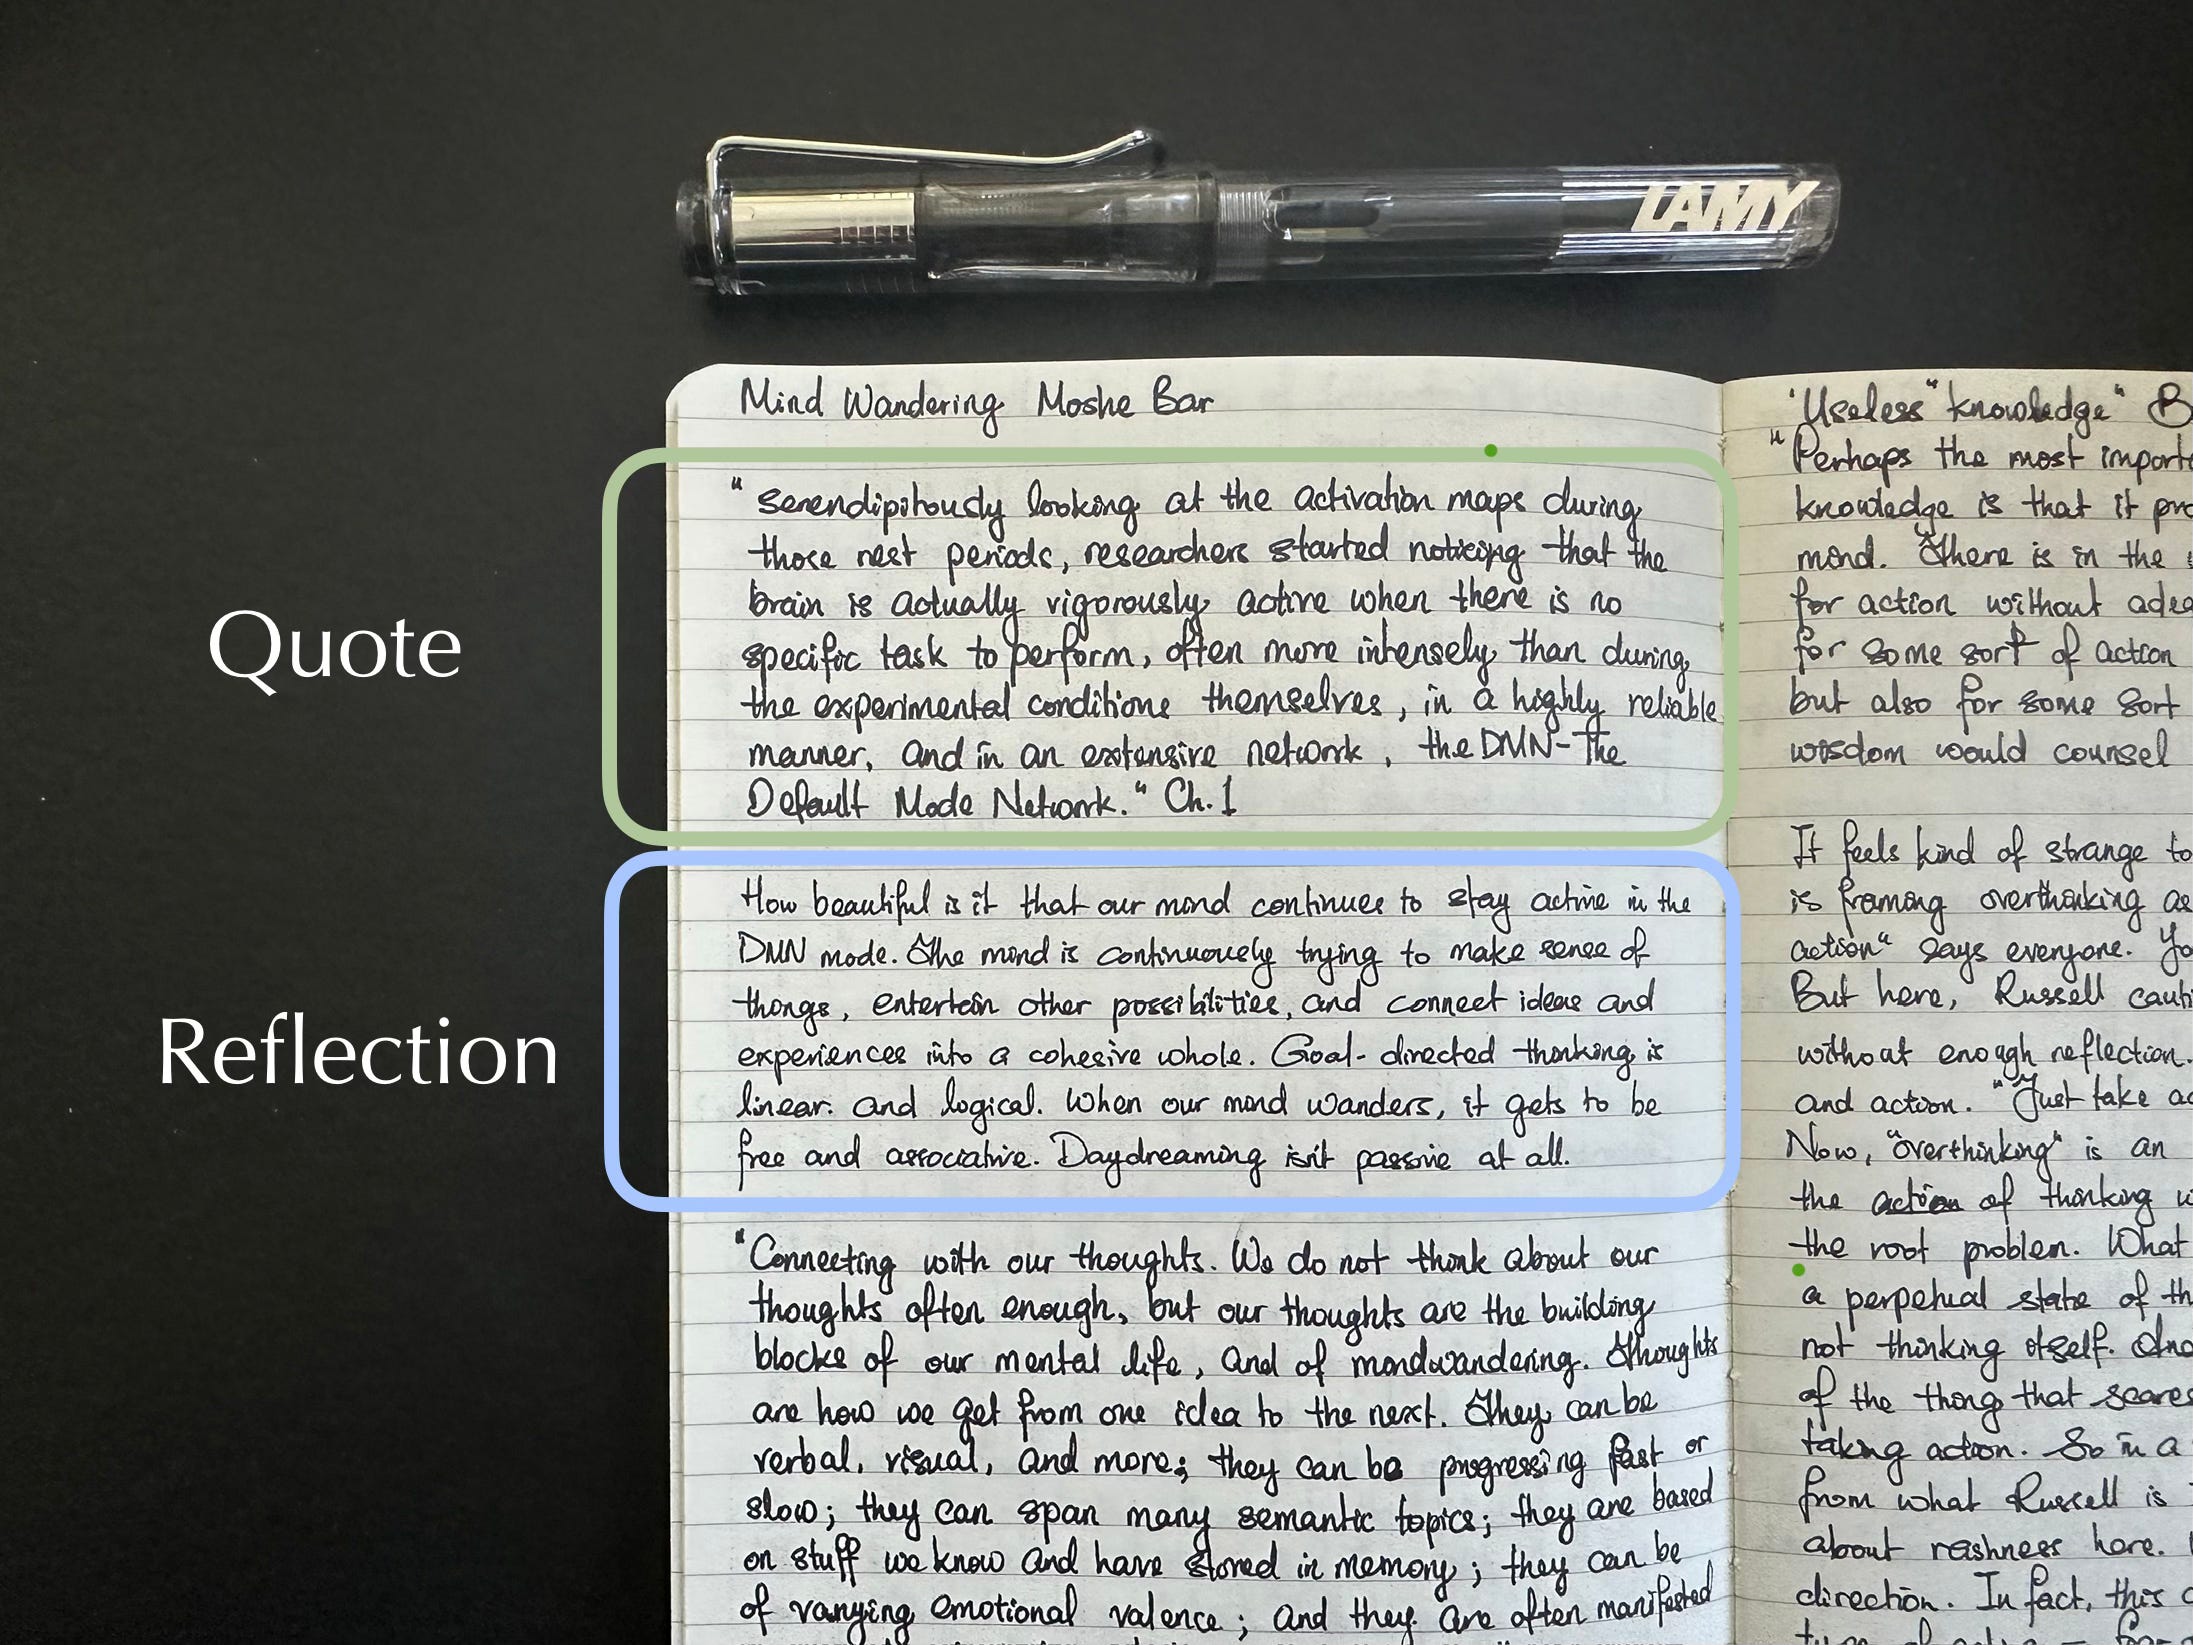 LAMY
Mind Wandering Moshe Bar
Quote
"serendipitously looking at the activation maps during
those rest periods, researchers started noticing that the
brain is actually vigorously active when there is no
specific task to perform, often more intensely than during
the experimental conditions themselves, in a highly reliable
manner, and in an extensive network, the DMN-The
Default Mode Network." Ch.1
Reflection
How beautiful is it that our mind continues to stay active in the
DMN mode. The mind is continuously trying to make sense of
things, entertain other possibilities, and connect ideas and
experiences into a cohesive whole. Goal-directed thinking is
linear and logical. When our mind wanders, it gets to be
free and associative. Daydreaming isn't passive at all.
"Connecting with our thoughts. We do not think about our
thoughts often enough, but our thoughts are the building
blocks of our mental life, and of mindwandering. Thoughts
are how we get from one idea to the next. They can be
verbal, visual, and more; they can be progressing fast or
slow; they can span many semantic topics; they are based
on stuff we know and have stored in memory; they can be
of varying emotional valence; and they are often manifested
'Useless "knowledge" B
"Perhaps the most import
knowledge is that it pro
mind. There is in the
for action without ade
for some sort of action
but also for some sort
wisdom would counsel
It feels kind of strange to
is framing overthinking as
action" says everyone. Yo
But here, Russell cauti
without enough reflection.
and action. "Just take ac
Now, "overthinking" is an
the action of thinking w
the root problem. What
a perpetual state of th
not thinking itself. And
of the thing that scares
taking action. So in a
from what Russell is
about rashness here.
direction. In fact, this